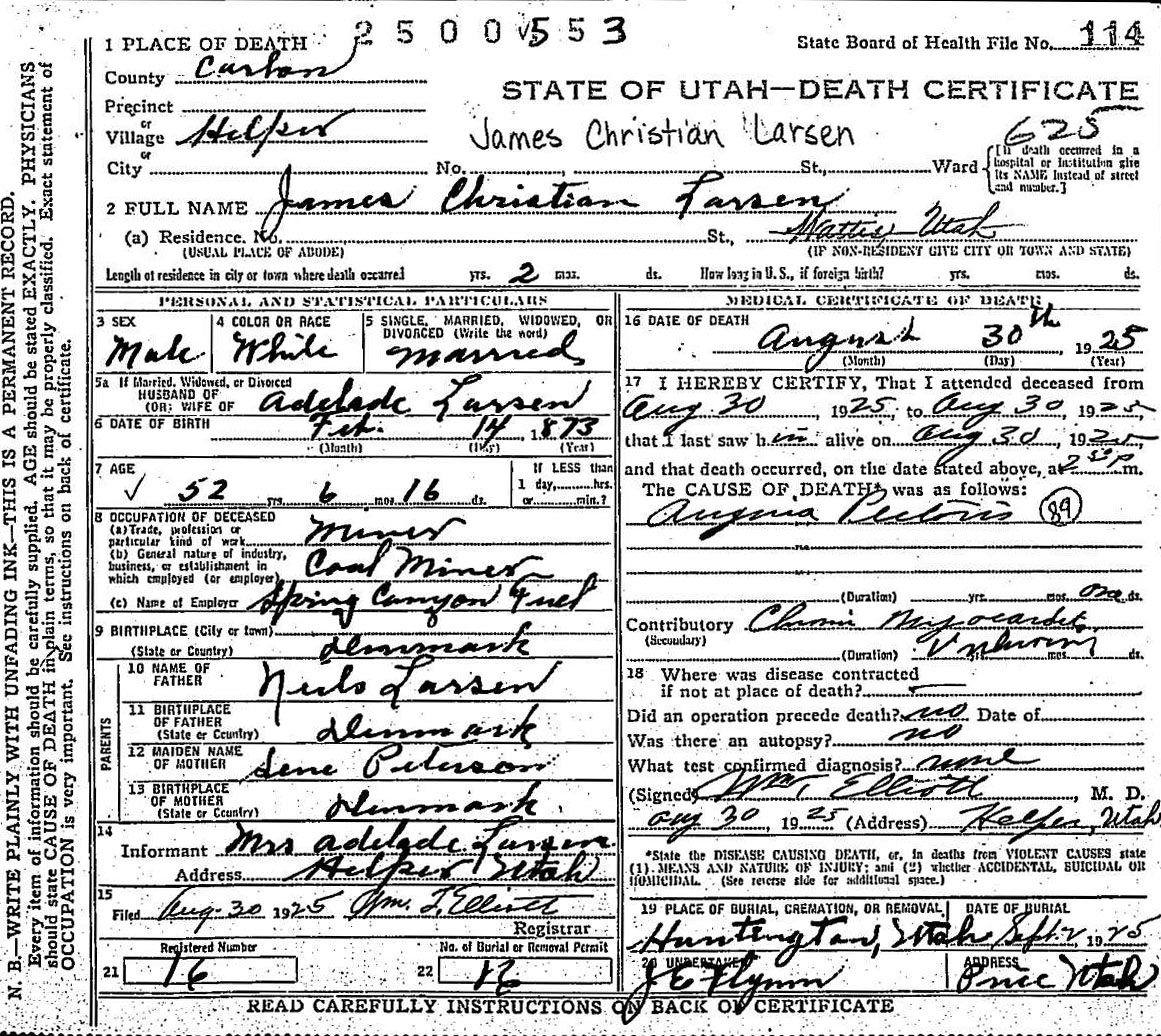 2500553
State Board of Health File No. 114
1 PLACE OF DEATH
County Carbon
STATE OF UTAH—DEATH CERTIFICATE
Precinct
or
Village Helper
James Christian Larsen
625
or
City No. , St., Ward
[If death occurred in a hospital or institution give its NAME instead of street and number.]
2 FULL NAME James Christian Larsen
(a) Residence. No. St., Wattis, Utah
(USUAL PLACE OF ABODE) (IF NON-RESIDENT GIVE CITY OR TOWN AND STATE)
Length of residence in city or town where death occurred yrs. 2 mos. ds. How long in U.S., if foreign birth? yrs. mos. ds.
PERSONAL AND STATISTICAL PARTICULARS
3 SEX
Male
4 COLOR OR RACE
White
5 SINGLE, MARRIED, WIDOWED, OR
DIVORCED (Write the word)
Married
5a If Married, Widowed, or Divorced
HUSBAND OF
(OR) WIFE OF Adelade Larsen
6 DATE OF BIRTH Feb. 14, 1873
(Month) (Day) (Year)
7 AGE
√ 52 yrs 6 mos 16 ds.
If LESS than
1 day, hrs.
or min.?
8 OCCUPATION OF DECEASED
(a) Trade, profession or
particular kind of work Miner
(b) General nature of industry,
business, or establishment in
which employed (or employer) Coal Miner
(c) Name of Employer Spring Canyon Fuel
9 BIRTHPLACE (City or town)
(State or Country) Denmark
PARENTS
10 NAME OF
FATHER Neils Larsen
11 BIRTHPLACE
OF FATHER
(State or Country) Denmark
12 MAIDEN NAME
OF MOTHER Lene Peterson
13 BIRTHPLACE
OF MOTHER
(State or Country) Denmark.
14
Informant Mrs Adelade Larsen
Address Helper Utah
15
Filed Aug. 30 1925 Wm. T. Elliott
Registrar
Registered Number
21 16
No. of Burial or Removal Permit
22 16
MEDICAL CERTIFICATE OF DEATH
16 DATE OF DEATH
August 30th 1925
(Month) (Day) (Year)
17 I HEREBY CERTIFY, That I attended deceased from
Aug 30, 1925, to Aug 30, 1925,
that I last saw him alive on Aug 30, 1925
and that death occurred, on the date stated above, at 2 30 P m.
The CAUSE OF DEATH* was as follows:
Angina Pectoris 89
(Duration) yrs. mos. one ds.
Contributory Chronic Myocardit
(Secondary)
(Duration) Unknown mos. ds.
18 Where was disease contracted
if not at place of death?
Did an operation precede death? no Date of
Was there an autopsy? no
What test confirmed diagnosis? none
(Signed) Wm. Elliott, M. D.
Aug 30, 1925 (Address) Helper, Utah
*State the DISEASE CAUSING DEATH, or, in deaths from VIOLENT CAUSES state
(1) MEANS AND NATURE OF INJURY; and (2) whether ACCIDENTAL, SUICIDAL OR
HOMICIDAL. (See reverse side for additional space.)
19 PLACE OF BURIAL, CREMATION, OR REMOVAL
Huntington, Utah
DATE OF BURIAL
Sept 2, 1925
20 UNDERTAKER
J E Flynn
ADDRESS
Price Utah
READ CAREFULLY INSTRUCTIONS ON BACK OF CERTIFICATE
N. B.—WRITE PLAINLY WITH UNFADING INK—THIS IS A PERMANENT RECORD.
Every item of information should be carefully supplied. AGE should be stated EXACTLY. PHYSICIANS
should state CAUSE OF DEATH in plain terms, so that it may be properly classified. Exact statement of
OCCUPATION is very important. See instructions on back of certificate.